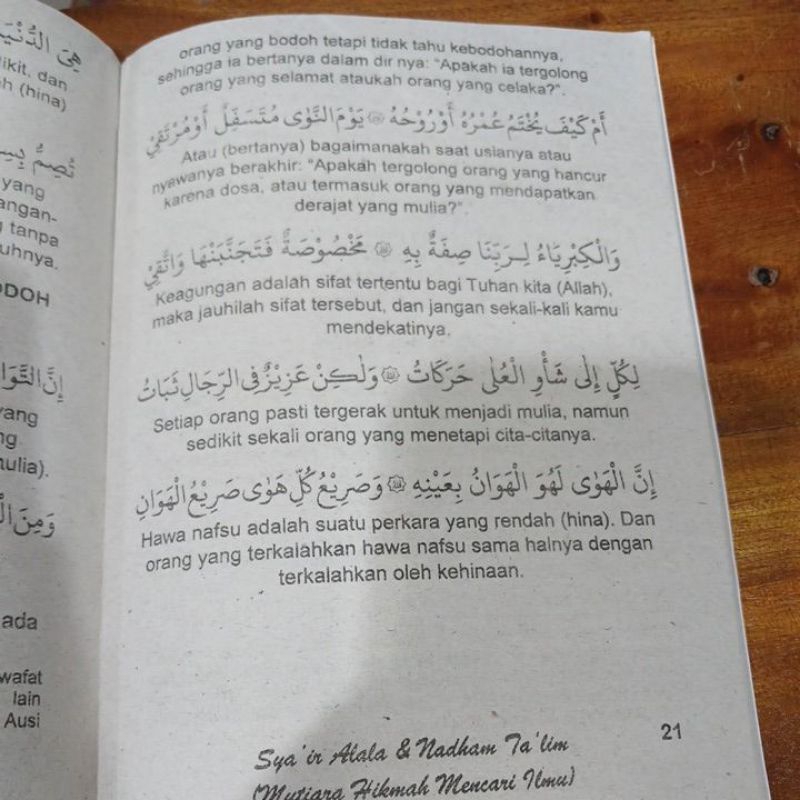 هِيَ الدُّنْيَا
ikit, dan
h (hina)
تُصِمُّ
yang
angan-
tanpa
uhnya.
ODOH
إِنَّ التَّوَا
yang
ng
nulia).
وَمِنَ
ada
wafat
lain
Ausi
orang yang bodoh tetapi tidak tahu kebodohannya,
sehingga ia bertanya dalam dir nya: "Apakah ia tergolong
orang yang selamat ataukah orang yang celaka?".
أَمْ كَيْفَ يُخْتَمُ عُمْرُهُ أَوْ رُوْحُهُ ۞ يَوْمَ النَّوٰى مُتَسَفِّلٌ أَوْ مُرْتَقِيْ
Atau (bertanya) bagaimanakah saat usianya atau
nyawanya berakhir: "Apakah tergolong orang yang hancur
karena dosa, atau termasuk orang yang mendapatkan
derajat yang mulia?"
وَالْكِبْرِيَاءُ لِرَبِّنَا صِفَةٌ بِهِ ۞ مَخْصُوْصَةٌ فَتَجَنَّبَنْهَا وَاتَّقِيْ
Keagungan adalah sifat tertentu bagi Tuhan kita (Allah),
maka jauhilah sifat tersebut, dan jangan sekali-kali kamu
mendekatinya.
لِكُلٍّ إِلٰى شَأْوِ الْعُلٰى حَرَكَاتُ ۞ وَلٰكِنْ عَزِيْزٌ فِى الرِّجَالِ ثَبَاتُ
Setiap orang pasti tergerak untuk menjadi mulia, namun
sedikit sekali orang yang menetapi cita-citanya.
إِنَّ الْهَوٰى لَهُوَ الْهَوَانُ بِعَيْنِهِ ۞ وَصَرِيْعُ كُلِّ هَوٰى صَرِيْعُ الْهَوَانِ
Hawa nafsu adalah suatu perkara yang rendah (hina). Dan
orang yang terkalahkan hawa nafsu sama halnya dengan
terkalahkan oleh kehinaan.
21
Sya'ir Alala & Nadham Ta'lim
(Mutiara Hikmah Mencari Ilmu)